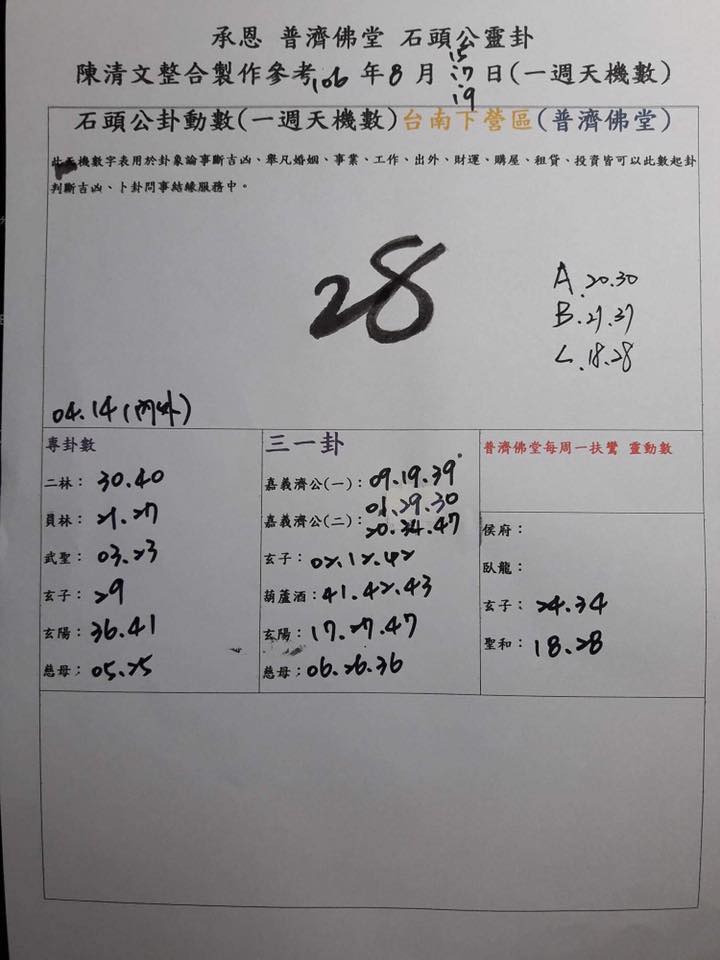 承恩 普濟佛堂 石頭公靈卦
陳清文整合製作參考106年8月15.17.19日(一週天機數)
石頭公卦動數(一週天機數)台南下營區(普濟佛堂)
此天機數字表用於卦象論事斷吉凶、舉凡婚姻、事業、工作、出外、財運、購屋、租貸、投資皆可以此數起卦
判斷吉凶、卜卦問事結緣服務中。
28
A.20.30
B.27.37
C.18.28
04.14(內外)
專卦數
二林：30.40
員林：21.27
武聖：03.23
玄子：29
玄陽：36.41
慈母；05.25
三一卦
嘉義濟公(一)：09.19.39
嘉義濟公(二)：01.29.30
20.34.47
玄子：02.12.42
葫蘆酒：41.42.43
玄陽：17.27.47
慈母；06.26.36
普濟佛堂每周一扶鸞 靈動數
侯府：
臥龍：
玄子：24.34
聖和：18.28